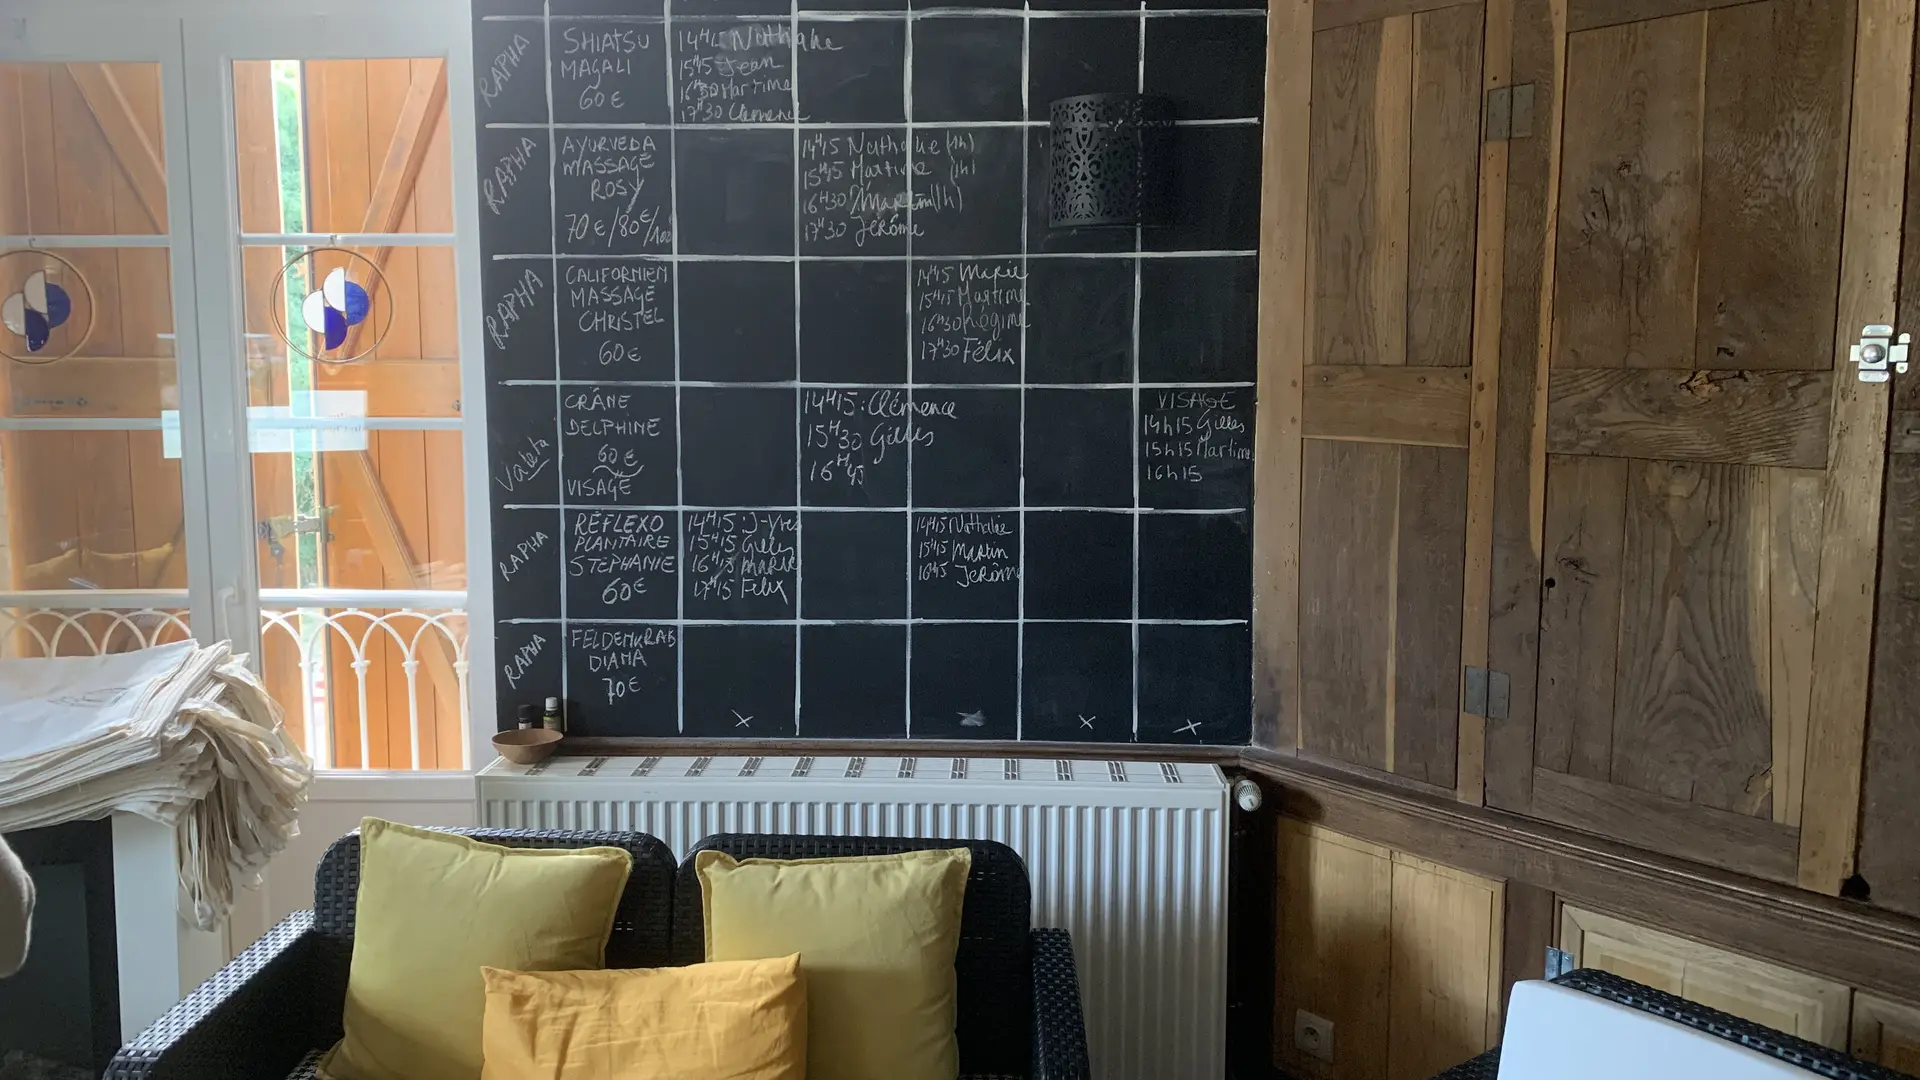 RAPHA
SHIATSU
MAGALI
60€
14H15 Nathalie
15H15 Jean
16H30 Martine
17H30 Clémence
RAPHA
AYURVEDA
MASSAGE
ROSY
70€/80€/100
14H15 Nathalie (1h)
15H15 Martine (1h)
16H30 Martin (1h)
17H30 Jérôme
RAPHA
CALIFORNIEN
MASSAGE
CHRISTEL
60€
14H15 Marie
15H15 Martine
16H30 Régine
17H30 Félix
Valeta
CRÂNE
DELPHINE
60€
VISAGE
14H15: Clémence
15H30 Gilles
16H45
VISAGE
14h15 Gilles
15h15 Martine
16h15
RAPHA
RÉFLEXO
PLANTAIRE
STEPHANIE
60€
14H15: J-Yves
15H15 Gilles
16H15 Marie
17H15 Felix
14H15 Nathalie
15H15 Martin
16H15 Jérôme
RAPHA
FELDENKRAIS
DIANA
70€